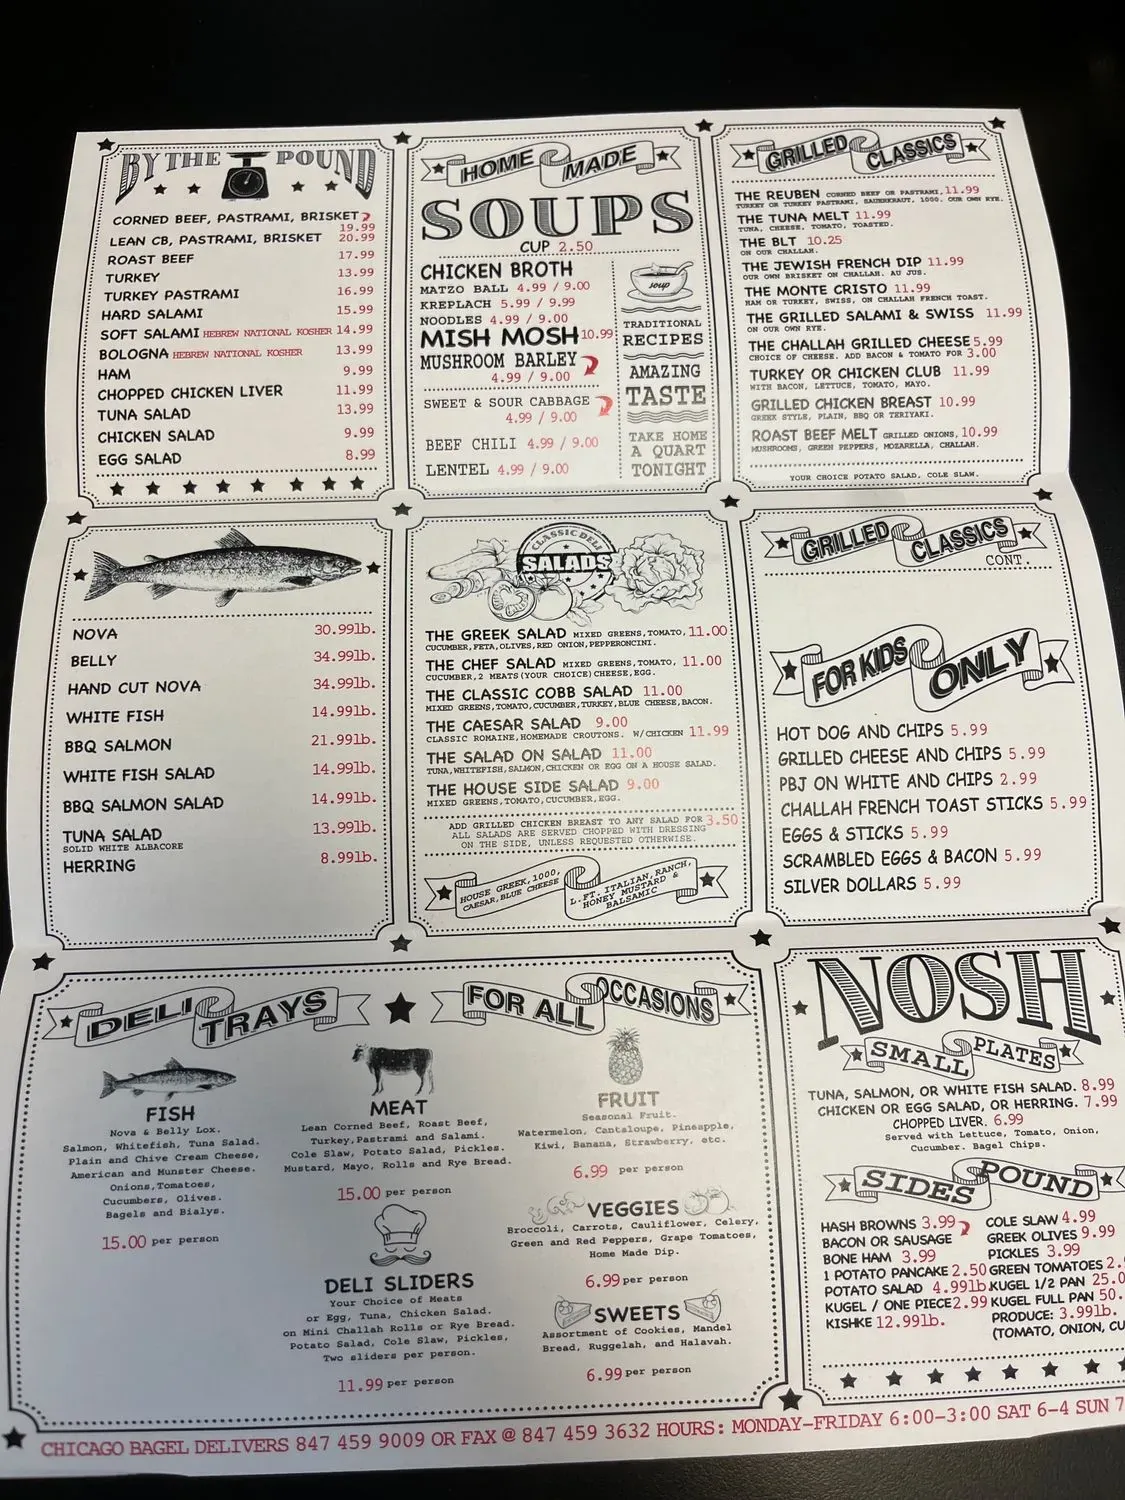 BY THE POUND
CORNED BEEF, PASTRAMI, BRISKET
19.99
LEAN CB, PASTRAMI, BRISKET 20.99
ROAST BEEF 17.99
TURKEY 13.99
TURKEY PASTRAMI 16.99
HARD SALAMI 15.99
SOFT SALAMI HEBREW NATIONAL KOSHER 14.99
BOLOGNA HEBREW NATIONAL KOSHER 13.99
HAM 9.99
CHOPPED CHICKEN LIVER 11.99
TUNA SALAD 13.99
CHICKEN SALAD 9.99
EGG SALAD 8.99
HOME MADE
SOUPS
CUP 2.50
CHICKEN BROTH
MATZO BALL 4.99 / 9.00
KREPLACH 5.99 / 9.99
NOODLES 4.99 / 9.00
MISH MOSH 10.99
MUSHROOM BARLEY
4.99 / 9.00
SWEET & SOUR CABBAGE
4.99 / 9.00
BEEF CHILI 4.99 / 9.00
LENTEL 4.99 / 9.00
soup
TRADITIONAL
RECIPES
AMAZING
TASTE
TAKE HOME
A QUART
TONIGHT
GRILLED CLASSICS
THE REUBEN CORNED BEEF OR PASTRAMI, 11.99
TURKEY OR TURKEY PASTRAMI, SAUERKRAUT, 1000. OUR OWN RYE.
THE TUNA MELT 11.99
TUNA, CHEESE, TOMATO, TOASTED.
THE BLT 10.25
ON OUR CHALLAH.
THE JEWISH FRENCH DIP 11.99
OUR OWN BRISKET ON CHALLAH. AU JUS.
THE MONTE CRISTO 11.99
HAM OR TURKEY, SWISS, ON CHALLAH FRENCH TOAST.
THE GRILLED SALAMI & SWISS 11.99
ON OUR OWN RYE.
THE CHALLAH GRILLED CHEESE 5.99
CHOICE OF CHEESE. ADD BACON & TOMATO FOR 3.00
TURKEY OR CHICKEN CLUB 11.99
WITH BACON, LETTUCE, TOMATO, MAYO.
GRILLED CHICKEN BREAST 10.99
GREEK STYLE, PLAIN, BBQ OR TERIYAKI.
ROAST BEEF MELT GRILLED ONIONS, 10.99
MUSHROOMS, GREEN PEPPERS, MOZARELLA, CHALLAH.
YOUR CHOICE POTATO SALAD, COLE SLAW.
NOVA 30.99lb.
BELLY 34.99lb.
HAND CUT NOVA 34.99lb.
WHITE FISH 14.99lb.
BBQ SALMON 21.99lb.
WHITE FISH SALAD 14.99lb.
BBQ SALMON SALAD 14.99lb.
TUNA SALAD 13.99lb.
SOLID WHITE ALBACORE
HERRING 8.99lb.
CLASSIC DELI
SALADS
THE GREEK SALAD MIXED GREENS, TOMATO, 11.00
CUCUMBER, FETA, OLIVES, RED ONION, PEPPERONCINI.
THE CHEF SALAD MIXED GREENS, TOMATO, 11.00
CUCUMBER, 2 MEATS (YOUR CHOICE) CHEESE, EGG.
THE CLASSIC COBB SALAD 11.00
MIXED GREENS, TOMATO, CUCUMBER, TURKEY, BLUE CHEESE, BACON.
THE CAESAR SALAD 9.00
CLASSIC ROMAINE, HOMEMADE CROUTONS. W/CHICKEN 11.99
THE SALAD ON SALAD 11.00
TUNA, WHITEFISH, SALMON, CHICKEN OR EGG ON A HOUSE SALAD.
THE HOUSE SIDE SALAD 9.00
MIXED GREENS, TOMATO, CUCUMBER, EGG.
ADD GRILLED CHICKEN BREAST TO ANY SALAD FOR 3.50
ALL SALADS ARE SERVED CHOPPED WITH DRESSING
ON THE SIDE, UNLESS REQUESTED OTHERWISE.
HOUSE GREEK, 1000,
CAESAR, BLUE CHEESE
L.FT. ITALIAN, RANCH,
HONEY MUSTARD &
BALSAMIC
GRILLED CLASSICS
CONT.
FOR KIDS ONLY
HOT DOG AND CHIPS 5.99
GRILLED CHEESE AND CHIPS 5.99
PBJ ON WHITE AND CHIPS 2.99
CHALLAH FRENCH TOAST STICKS 5.99
EGGS & STICKS 5.99
SCRAMBLED EGGS & BACON 5.99
SILVER DOLLARS 5.99
DELI TRAYS FOR ALL OCCASIONS
FISH
Nova & Belly Lox.
Salmon, Whitefish, Tuna Salad.
Plain and Chive Cream Cheese,
American and Munster Cheese.
Onions, Tomatoes,
Cucumbers, Olives.
Bagels and Bialys.
15.00 per person
MEAT
Lean Corned Beef, Roast Beef,
Turkey, Pastrami and Salami.
Cole Slaw, Potato Salad, Pickles.
Mustard, Mayo, Rolls and Rye Bread.
15.00 per person
DELI SLIDERS
Your Choice of Meats
or Egg, Tuna, Chicken Salad.
on Mini Challah Rolls or Rye Bread.
Potato Salad, Cole Slaw, Pickles,
Two sliders per person.
11.99 per person
FRUIT
Seasonal Fruit.
Watermelon, Cantaloupe, Pineapple,
Kiwi, Banana, Strawberry, etc.
6.99 per person
VEGGIES
Broccoli, Carrots, Cauliflower, Celery,
Green and Red Peppers, Grape Tomatoes,
Home Made Dip.
6.99 per person
SWEETS
Assortment of Cookies, Mandel
Bread, Ruggelah, and Halavah.
6.99 per person
NOSH
SMALL PLATES
TUNA, SALMON, OR WHITE FISH SALAD. 8.99
CHICKEN OR EGG SALAD, OR HERRING. 7.99
CHOPPED LIVER. 6.99
Served with Lettuce, Tomato, Onion,
Cucumber. Bagel Chips.
SIDES POUND
HASH BROWNS 3.99
BACON OR SAUSAGE
BONE HAM 3.99
1 POTATO PANCAKE 2.50
POTATO SALAD 4.99lb.
KUGEL / ONE PIECE 2.99
KISHKE 12.99lb.
COLE SLAW 4.99
GREEK OLIVES 9.99
PICKLES 3.99
GREEN TOMATOES 2.
KUGEL 1/2 PAN 25.0
KUGEL FULL PAN 50.
PRODUCE: 3.99lb.
(TOMATO, ONION, CU
CHICAGO BAGEL DELIVERS 847 459 9009 OR FAX @ 847 459 3632 HOURS: MONDAY-FRIDAY 6:00-3:00 SAT 6-4 SUN 7